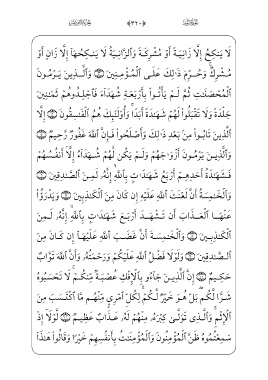 ﴿٣٢٠﴾
لَا يَنكِحُ إِلَّا زَانِيَةً أَوْ مُشْرِكَةً وَٱلزَّانِيَةُ لَا يَنكِحُهَآ إِلَّا زَانٍ أَوْ
مُشْرِكٌ وَحُرِّمَ ذَٰلِكَ عَلَى ٱلْمُؤْمِنِينَ ۝ وَٱلَّذِينَ يَرْمُونَ
ٱلْمُحْصَنَٰتِ ثُمَّ لَمْ يَأْتُوا۟ بِأَرْبَعَةِ شُهَدَآءَ فَٱجْلِدُوهُمْ ثَمَٰنِينَ
جَلْدَةً وَلَا تَقْبَلُوا۟ لَهُمْ شَهَٰدَةً أَبَدًا وَأُو۟لَٰٓئِكَ هُمُ ٱلْفَٰسِقُونَ ۝ إِلَّا
ٱلَّذِينَ تَابُوا۟ مِنۢ بَعْدِ ذَٰلِكَ وَأَصْلَحُوا۟ فَإِنَّ ٱللَّهَ غَفُورٌ رَّحِيمٌ ۝
وَٱلَّذِينَ يَرْمُونَ أَزْوَٰجَهُمْ وَلَمْ يَكُن لَّهُمْ شُهَدَآءُ إِلَّآ أَنفُسُهُمْ
فَشَهَٰدَةُ أَحَدِهِمْ أَرْبَعُ شَهَٰدَٰتٍۭ بِٱللَّهِ إِنَّهُۥ لَمِنَ ٱلصَّٰدِقِينَ ۝
وَٱلْخَٰمِسَةُ أَنَّ لَعْنَتَ ٱللَّهِ عَلَيْهِ إِن كَانَ مِنَ ٱلْكَٰذِبِينَ ۝ وَيَدْرَؤُا۟
عَنْهَا ٱلْعَذَابَ أَن تَشْهَدَ أَرْبَعَ شَهَٰدَٰتٍۭ بِٱللَّهِ إِنَّهُۥ لَمِنَ
ٱلْكَٰذِبِينَ ۝ وَٱلْخَٰمِسَةَ أَنَّ غَضَبَ ٱللَّهِ عَلَيْهَآ إِن كَانَ مِنَ
ٱلصَّٰدِقِينَ ۝ وَلَوْلَا فَضْلُ ٱللَّهِ عَلَيْكُمْ وَرَحْمَتُهُۥ وَأَنَّ ٱللَّهَ تَوَّابٌ
حَكِيمٌ ۝ إِنَّ ٱلَّذِينَ جَآءُو بِٱلْإِفْكِ عُصْبَةٌ مِّنكُمْ لَا تَحْسَبُوهُ
شَرًّا لَّكُم بَلْ هُوَ خَيْرٌ لَّكُمْ لِكُلِّ ٱمْرِئٍ مِّنْهُم مَّا ٱكْتَسَبَ مِنَ
ٱلْإِثْمِ وَٱلَّذِى تَوَلَّىٰ كِبْرَهُۥ مِنْهُمْ لَهُۥ عَذَابٌ عَظِيمٌ ۝ لَّوْلَآ إِذْ
سَمِعْتُمُوهُ ظَنَّ ٱلْمُؤْمِنُونَ وَٱلْمُؤْمِنَٰتُ بِأَنفُسِهِمْ خَيْرًا وَقَالُوا۟ هَٰذَآ